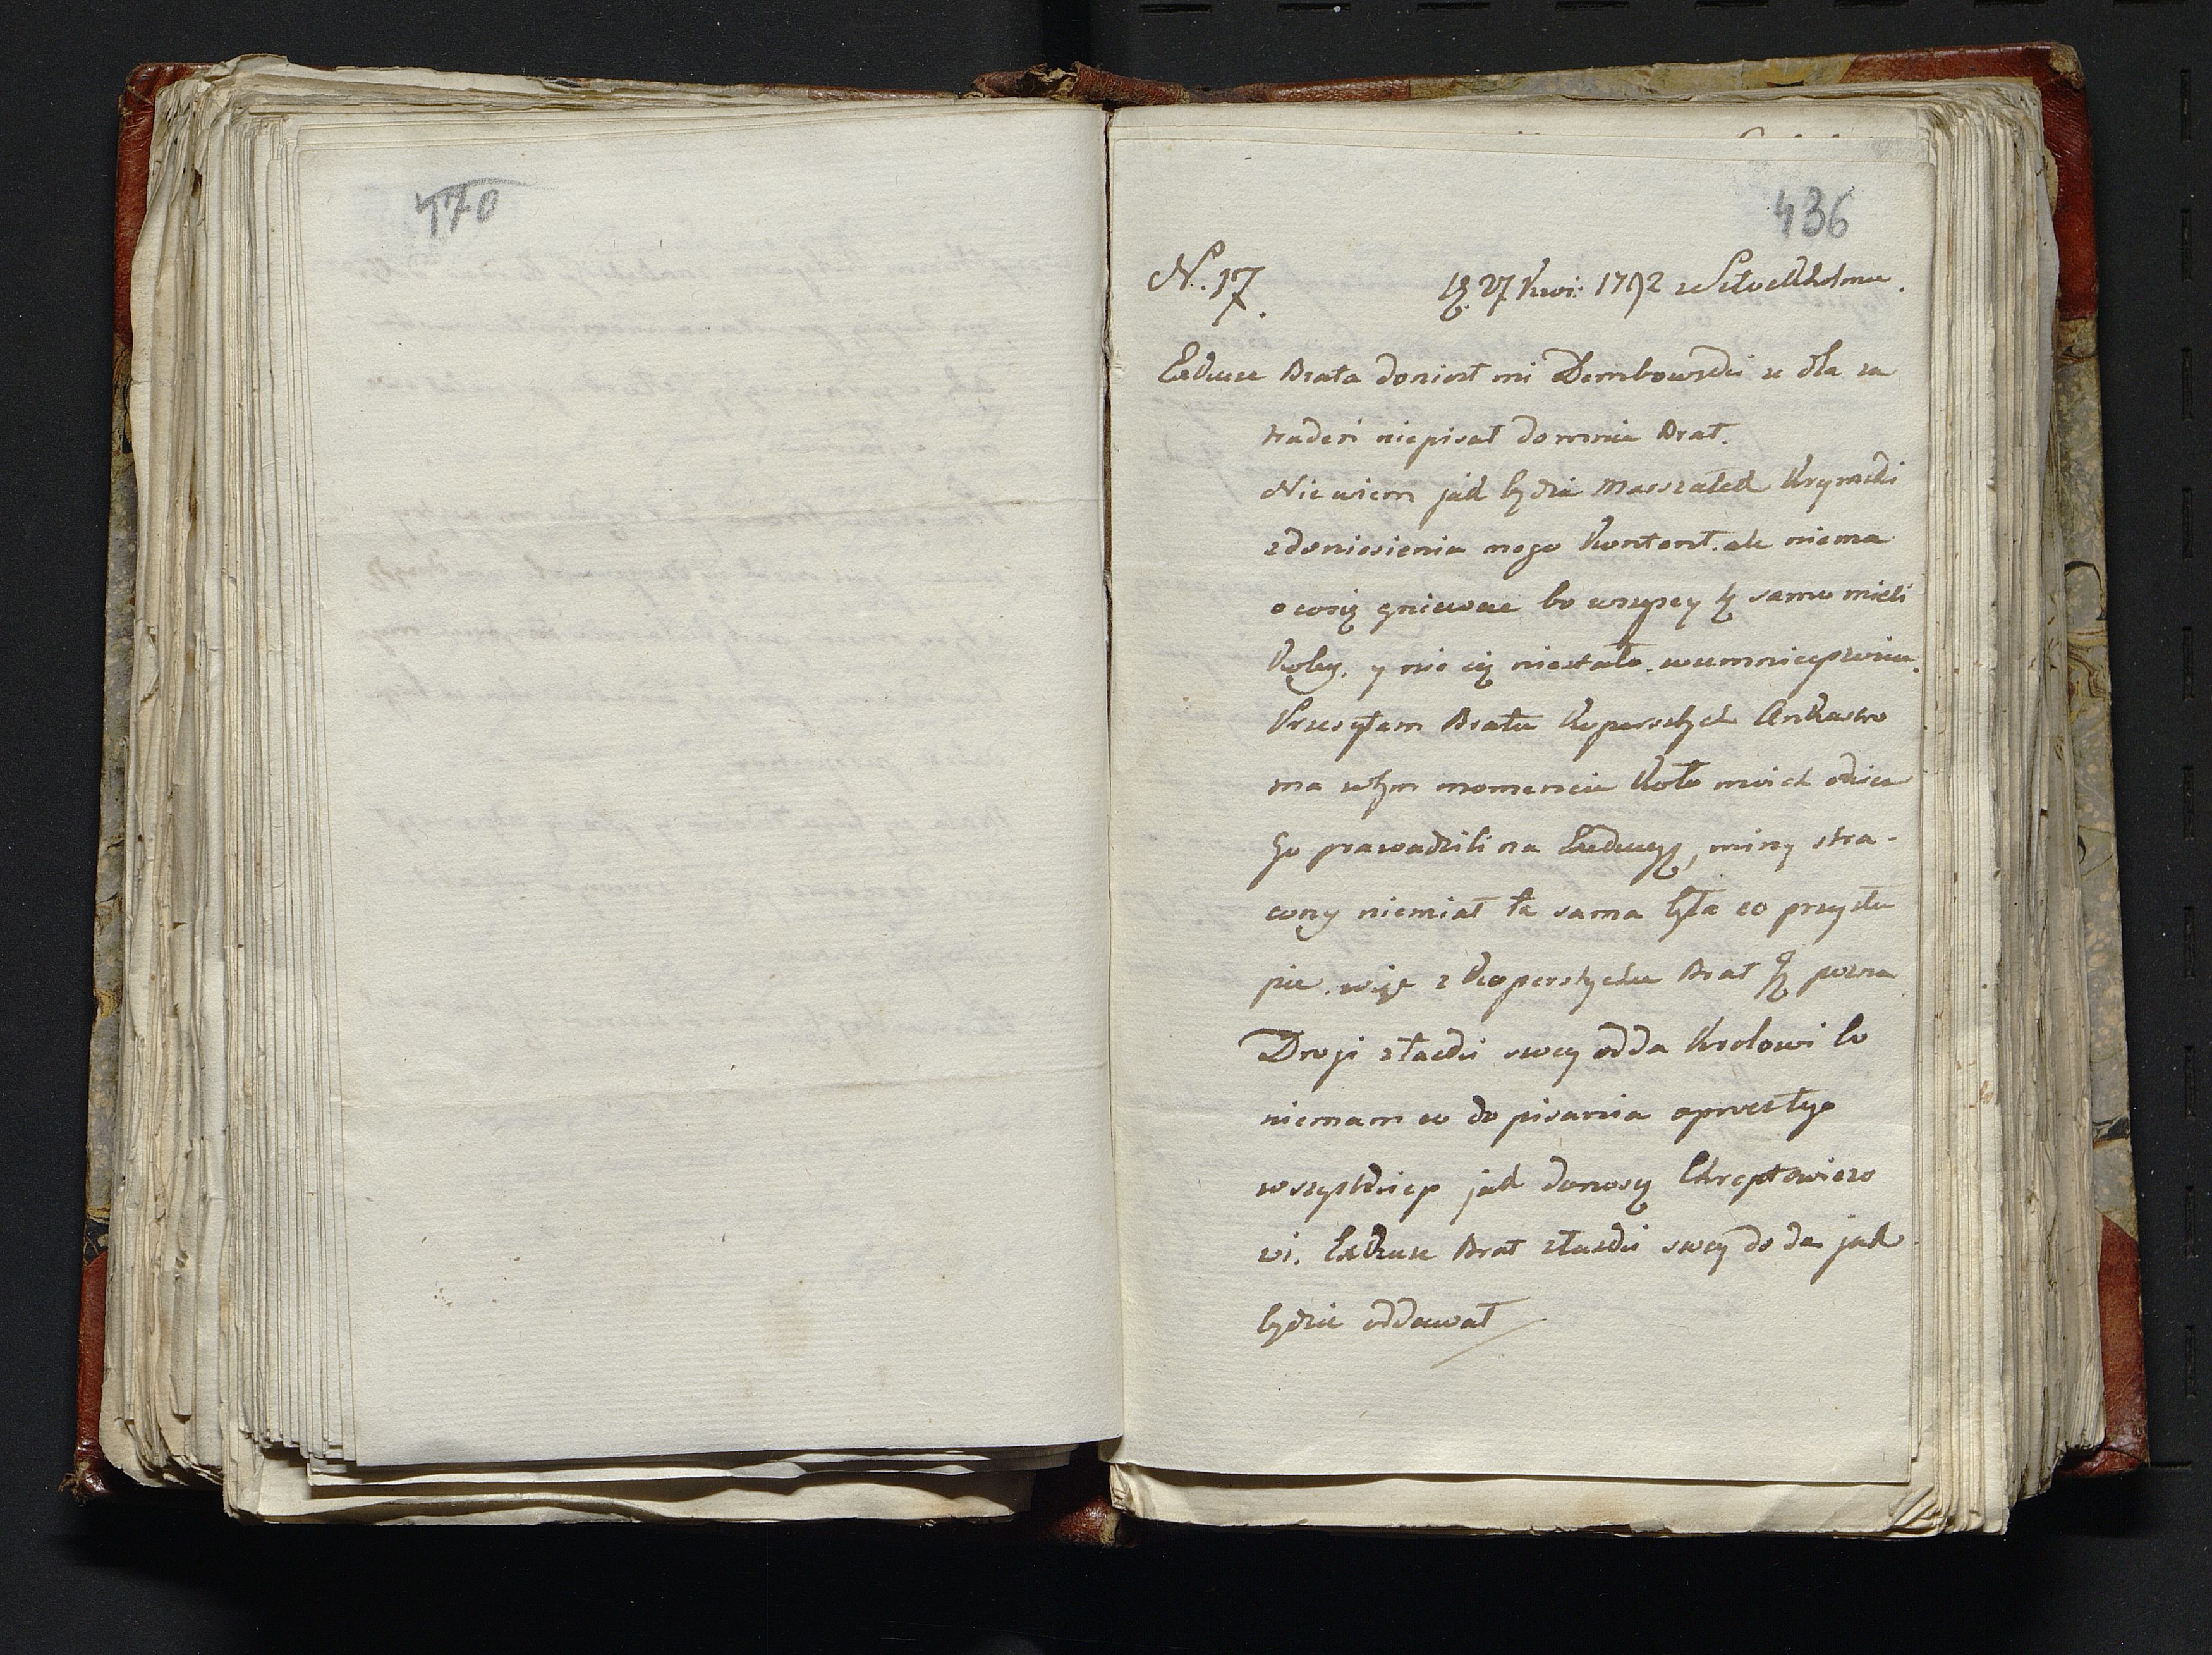 470
436
N. 17. D. 27 Kwi: 1792 z Sztockholmu.
Exkuze Brata doniosł mi Dembowski ze dla za
trudeń niepisał domnie Brat.
Niewiem jak będzie Marszałek
zdoniesienia mego kontent. ale niema
o cosię gniewac bo wszyscy tę samo mieli
koley. y nic się niestało.
Przesyłam Bratu kopersztych Ankastro
ma wtym momencie koło moich okien
go prawadzili na Exekucyę, miny stra-
cony niemiał ta sama była co przystu
pie. więc z kopersztychu Brat Ję pozna
Drugi złaski swey odda Krolowi bo
niemam co do pisania oprocz tego
wszystkiego jak donoszę Chreptowiczo
wi. Exkuze Brat złaski swey do da jak
będzie oddawał